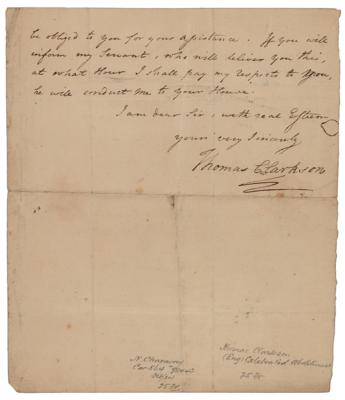 be obliged to you for your assistance. If you will
inform my Servant, who will deliver you this,
at what Hour I shall pay my respects to you,
he will conduct me to your House.
I am dear Sir, with real Esteem
yours very sincerely
Thomas Clarkson
N. Charavay
Thomas Clarkson
(Eng) Celebrated Abolitionist
75 fr
75 fr